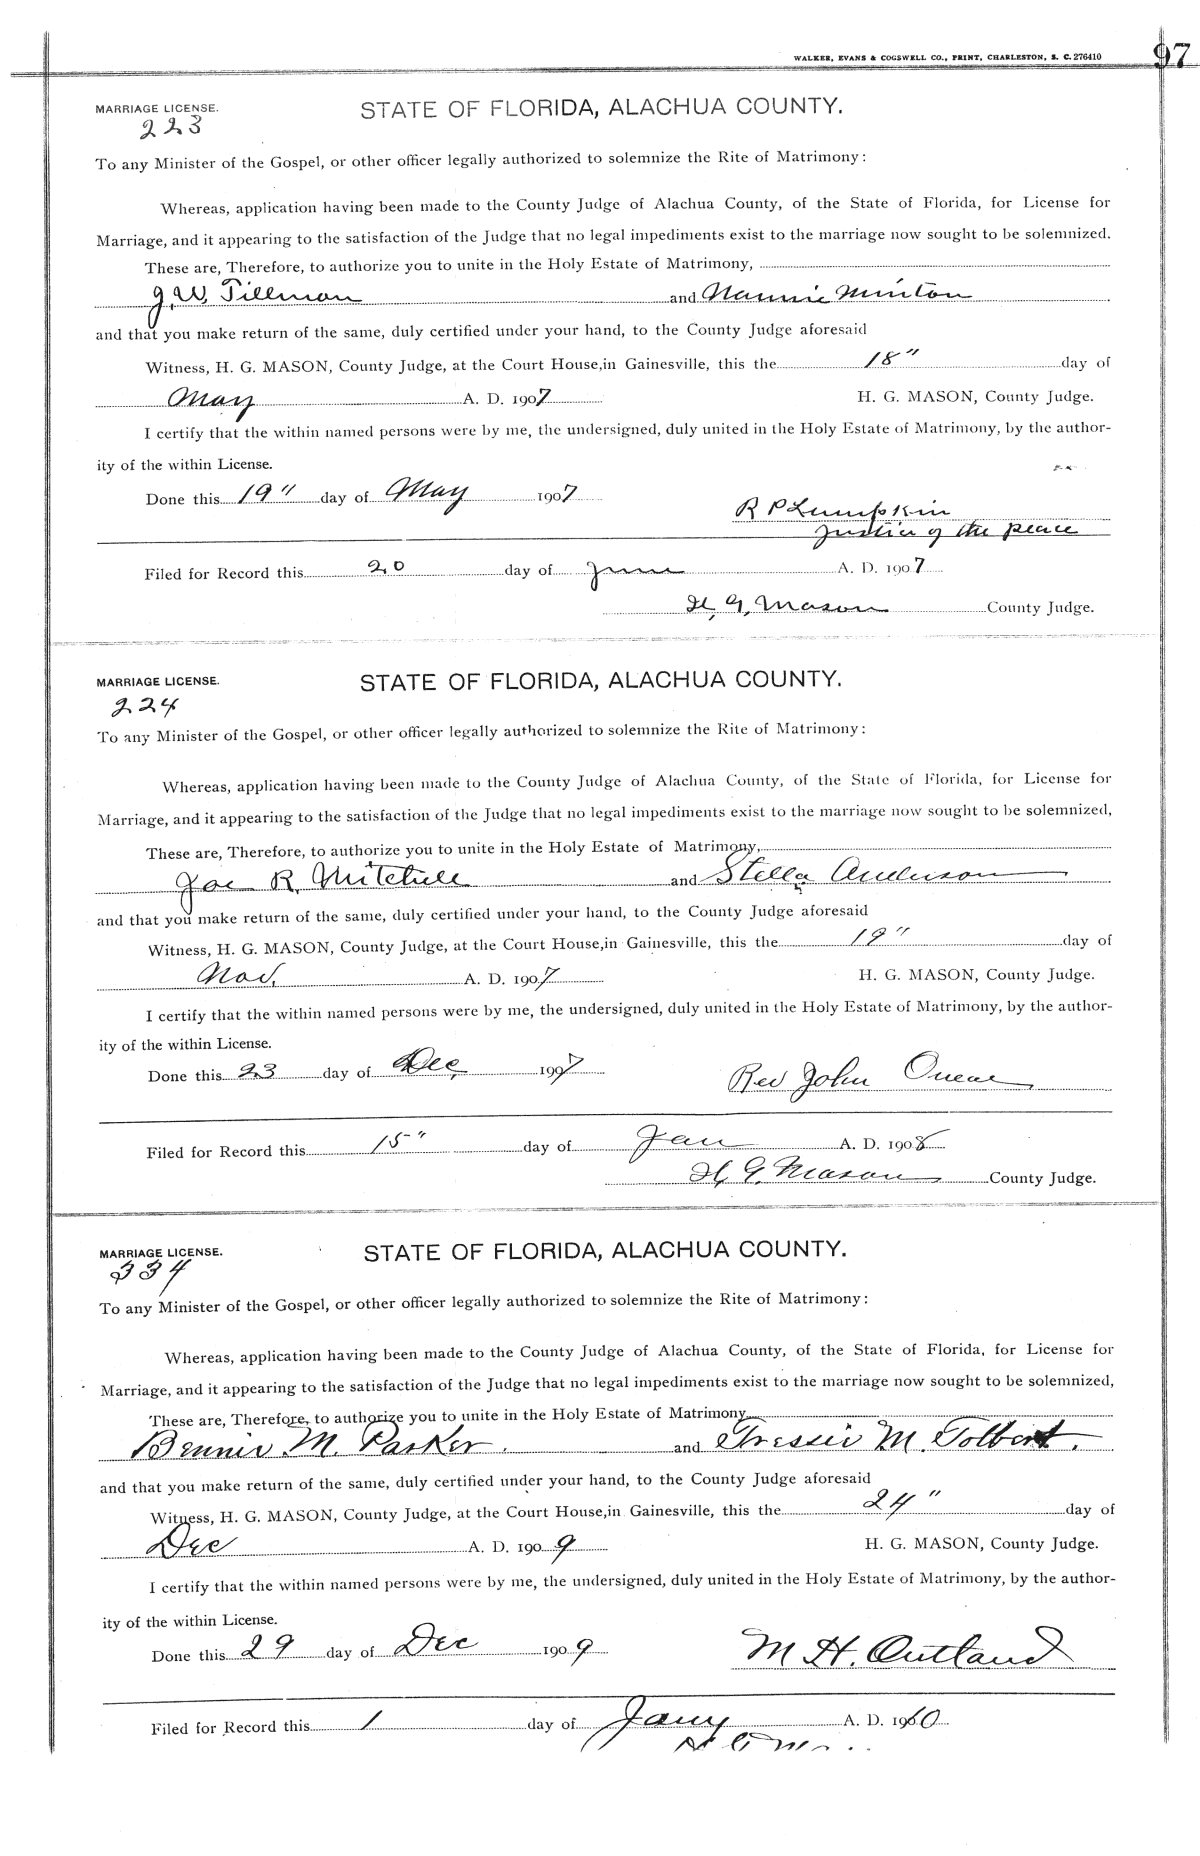 WALKER, EVANS & COGSWELL CO., PRINT, CHARLESTON, S. C. 276410
97
MARRIAGE LICENSE.
STATE OF FLORIDA, ALACHUA COUNTY.
223
To any Minister of the Gospel, or other officer legally authorized to solemnize the Rite of Matrimony:
Whereas, application having been made to the County Judge of Alachua County, of the State of Florida, for License for
Marriage, and it appearing to the satisfaction of the Judge that no legal impediments exist to the marriage now sought to be solemnized.
These are, Therefore, to authorize you to unite in the Holy Estate of Matrimony,
J. W. Tillman and Nannie Minton
and that you make return of the same, duly certified under your hand, to the County Judge aforesaid
Witness, H. G. MASON, County Judge, at the Court House,in Gainesville, this the 18" day of
May A. D. 1907 H. G. MASON, County Judge.
I certify that the within named persons were by me, the undersigned, duly united in the Holy Estate of Matrimony, by the author-
ity of the within License.
Done this 19" day of May 1907
R P Lumpkin
Justice of the peace
Filed for Record this 20 day of June A. D. 1907
H. G. Mason County Judge.
MARRIAGE LICENSE.
STATE OF FLORIDA, ALACHUA COUNTY.
224
To any Minister of the Gospel, or other officer legally authorized to solemnize the Rite of Matrimony:
Whereas, application having been made to the County Judge of Alachua County, of the State of Florida, for License for
Marriage, and it appearing to the satisfaction of the Judge that no legal impediments exist to the marriage now sought to be solemnized,
These are, Therefore, to authorize you to unite in the Holy Estate of Matrimony,
Joe R. Mitchell and Stella Anderson
and that you make return of the same, duly certified under your hand, to the County Judge aforesaid
Witness, H. G. MASON, County Judge, at the Court House,in Gainesville, this the 19" day of
Nov. A. D. 1907 H. G. MASON, County Judge.
I certify that the within named persons were by me, the undersigned, duly united in the Holy Estate of Matrimony, by the author-
ity of the within License.
Done this 23 day of Dec. 1907 Rev John Oneal
Filed for Record this 15" day of Jan A. D. 1908
H. G. Mason County Judge.
MARRIAGE LICENSE.
STATE OF FLORIDA, ALACHUA COUNTY.
334
To any Minister of the Gospel, or other officer legally authorized to solemnize the Rite of Matrimony:
Whereas, application having been made to the County Judge of Alachua County, of the State of Florida, for License for
Marriage, and it appearing to the satisfaction of the Judge that no legal impediments exist to the marriage now sought to be solemnized,
These are, Therefore, to authorize you to unite in the Holy Estate of Matrimony
Bennie M. Parker. and Tressie M. Tolbert.
and that you make return of the same, duly certified under your hand, to the County Judge aforesaid
Witness, H. G. MASON, County Judge, at the Court House,in Gainesville, this the 24" day of
Dec A. D. 1909 H. G. MASON, County Judge.
I certify that the within named persons were by me, the undersigned, duly united in the Holy Estate of Matrimony, by the author-
ity of the within License.
Done this 29 day of Dec 1909 M. H. Outland
Filed for Record this 1 day of Jany A. D. 1910